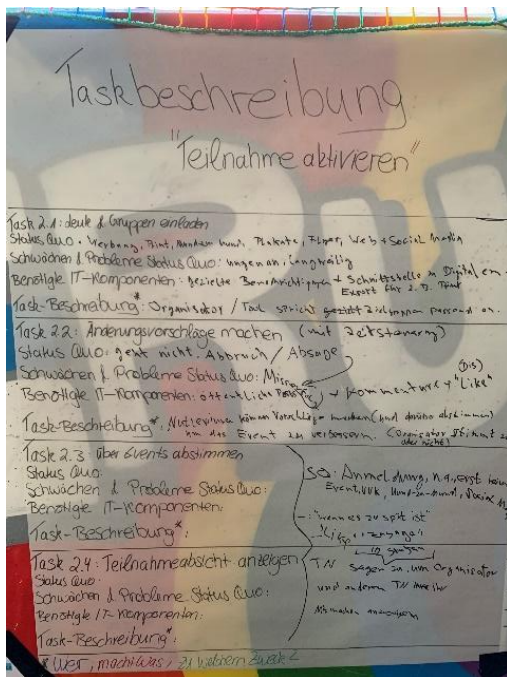 Taskbeschreibung
"Teilnahme aktivieren"
Task 2.1: Leute & Gruppen einladen
Status Quo: Werbung, Print, Mund zu Mund, Plakate, Flyer, Web + Social Media
Schwächen & Probleme Status Quo: ungenau, langweilig
Benötigte IT-Komponenten: gezielte Benachrichtigungen + Schnittstelle zu Digital
Export für z.B. Print
Task-Beschreibung*: Organisator / Tool spricht Zielgruppen passend an.
Task 2.2: Änderungsvorschläge machen (mit Zeitsteuerung)
Status Quo: geht nicht. Abbruch / Absage
Schwächen & Probleme Status Quo:
Benötigte IT-Komponenten: öffentliche + Kommentare + "Like"
(Dis)
Task-Beschreibung*: NutzerInnen können Vorschläge machen (und darüber abstimmen)
um das Event zu verbessern. (Organisator stimmt zu
oder nicht)
Task 2.3 über Events abstimmen
Status Quo:
Schwächen & Probleme Status Quo:
Benötigte IT-Komponenten:
Task-Beschreibung*:
SQ: Anmeldung, erst beim
Event, VVK, Mund-zu-Mund, Social
- "wenn es zu spät ist"
Task 2.4: Teilnahmeabsicht anzeigen
Status Quo:
Schwächen & Probleme Status Quo:
Benötigte IT-Komponenten:
Task-Beschreibung*:
TN sagen zu, um Organisator
und anderen TN
Mitmachen
* Wer, macht was, zu welchem Zweck?